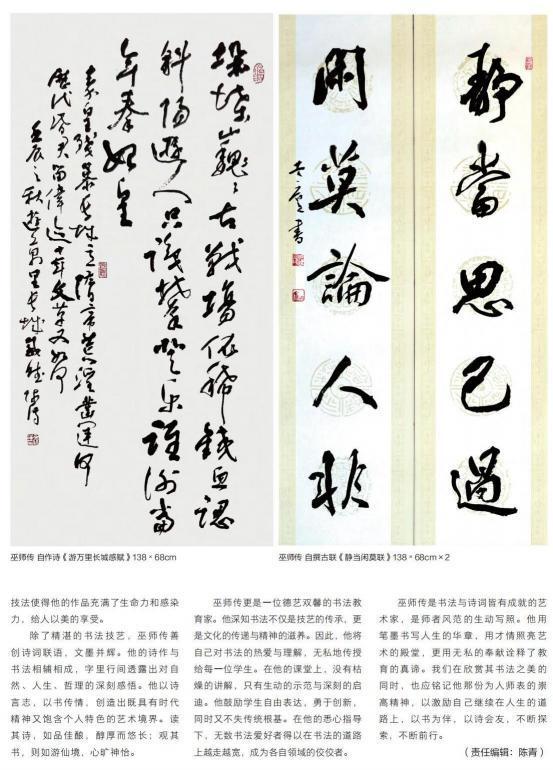 垛堞巍巍古戰場依稀鐵血認
斜陽遊人只識攀登樂誰謝當
年秦始皇
秦皇殘暴長城立隋帝荒淫運河
歷代昏君偉跡十年文革又如何
壬辰之秋遊萬里長城感賦師傳
靜當思己過
閑莫論人非
書
巫师传 自作诗《游万里长城感赋》138×68cm
巫师传 自撰古联《静当闲莫联》138×68cm×2
技法使得他的作品充满了生命力和感染
力，给人以美的享受。
除了精湛的书法技艺，巫师传善
创诗词联语，文墨并辉。他的诗作与
书法相辅相成，字里行间透露出对自
然、人生、哲理的深刻感悟。他以诗
言志，以书传情，创造出既具有时代
精神又饱含个人特色的艺术境界。读
其诗，如品佳酿，醇厚而悠长；观其
书，则如游仙境，心旷神怡。
巫师传更是一位德艺双馨的书法教
育家。他深知书法不仅是技艺的传承，更
是文化的传递与精神的滋养。因此，他将
自己对书法的热爱与理解，无私地传授
给每一位学生。在他的课堂上，没有枯
燥的讲解，只有生动的示范与深刻的启
迪。他鼓励学生自由表达，勇于创新，
同时又不失传统根基。在他的悉心指导
下，无数书法爱好者得以在书法的道路
上越走越宽，成为各自领域的佼佼者。
巫师传是书法与诗词皆有成就的艺
术家，是师者风范的生动写照。他用
笔墨书写人生的华章，用才情照亮艺
术的殿堂，更用无私的奉献诠释了教
育的真谛。我们在欣赏其书法之美的
同时，也应铭记他那份为人师表的崇
高精神，以激励自己继续在人生的道
路上，以书为伴，以诗会友，不断探
索，不断前行。
（责任编辑：陈青）